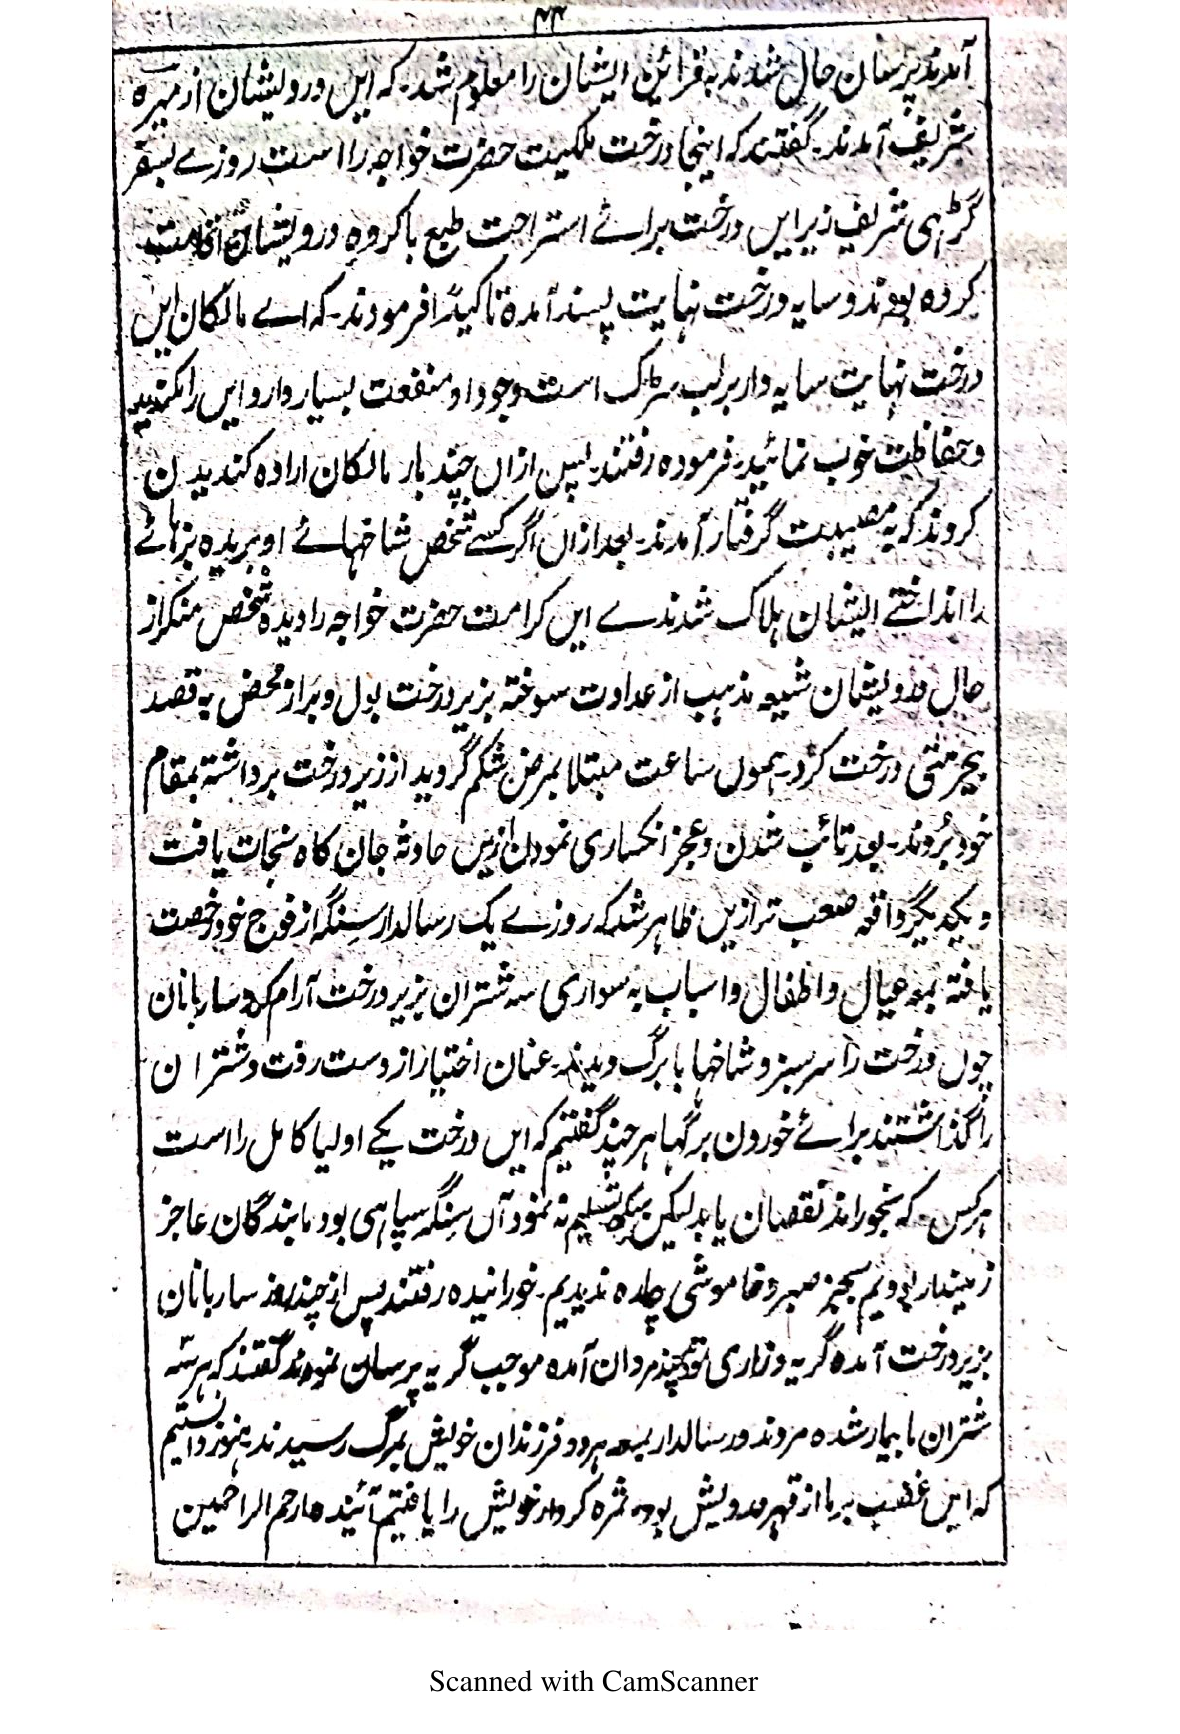 ۴۳
آمدند پرسان حال شدند بہ قرائن ایشان را معلوم شد۔ کہ ایں درویشان از میرہ
شریف آمدند۔ گفتند کہ اینجا درخت ملکیت حضرت خواجہ را است روزے بسفر
گڑہی شریف زیر ایں درخت برائے استراحت طبع با گروہ درویشان اقامت
کردہ بودند و سایہ درخت نہایت پسند آمدہ تاکیداً فرمودند۔ کہ اے مالکان ایں
درخت نہایت سایہ دار برلب سڑک است وجود او منفعت بسیار دارد ایں را نکندید
و حفاظت خوب نمائید۔ فرمودہ رفتند۔ پس ازاں چند بار مالکان ارادہ کندیدن
کردند کہ بہ مصیبت گرفتار آمدند۔ بعد ازاں اگر کسے شخص شاخہائے او بریدہ بزہائے
را انداختے ایشان ہلاک شدندے ایں کرامت حضرت خواجہ را دیدہ شخص منکر از
حال درویشان شیعہ مذہب از عداوت سوختہ بزیر درخت بول و براز محض بہ قصد
بیحرمتی درخت کرد۔ ہموں ساعت مبتلا بمرض شکم گردید از زیر درخت برداشتہ بمقام
خود بُردند۔ بعد تائب شدن و عجز انکساری نمودن ازیں حادثہ جان کاہ نجات یافت
و یکدیگر واقعہ صعب تر ازیں ظاہر شد کہ روزے یک رسالدار سِنگہ از فوج خود رخصت
یافتہ بمعہ عیال و اطفال و اسباب بہ سواری سہ شتران بزیر درخت آرام کرد ساربانان
چوں درخت را سرسبز و شاخہا با برگ دیدند۔ عنان اختیار از دست رفت و شتران
را گذاشتند برائے خوردن برگہا ہر چند گفتیم کہ ایں درخت یکے اولیا کامل را است
ہر کس کہ بخوراند نقصان یابد لیکن تسلیم نہ نمود آں سِنگہ سپاہی بود ما بندگان عاجز
زمیندار بودیم بجز صبر و خاموشی چارہ ندیدیم۔ خورانیدہ رفتند پس از چند روز ساربانان
بزیر درخت آمدہ گریہ و زاری چند مردان آمدہ موجب گریہ پرسان نمودند گفتند کہ ہر سہ
شتران ما بیمار شدہ مردند و رسالدار بمعہ ہر دو فرزندان خویش بمرگ رسیدند۔ ہنوز دانستیم
کہ ایں غضب بر ما از قہر درویش بود۔ ثمرہ کردار خویش را یافتیم آئیندہ ارحم الراحمین
Scanned with CamScanner